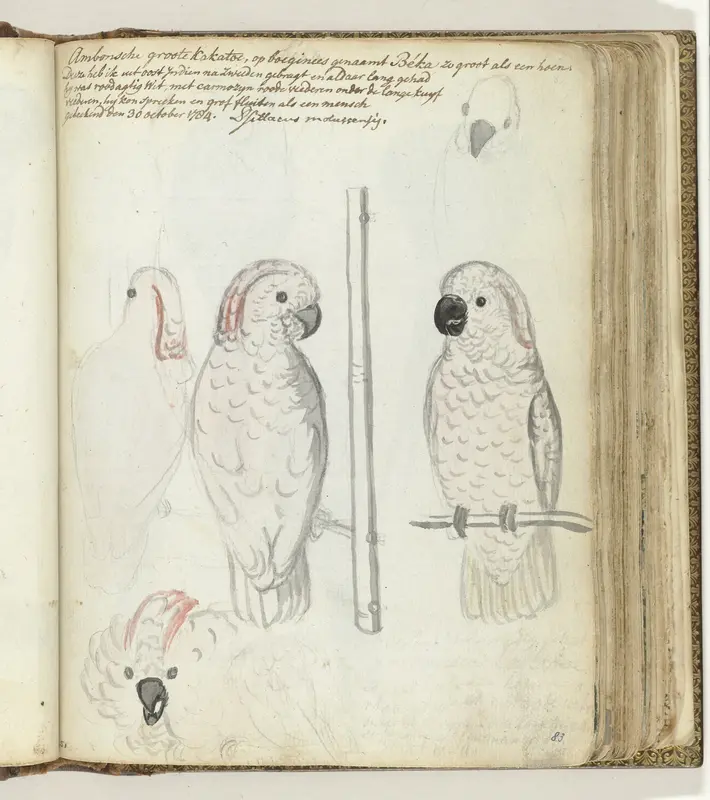 Ambonsche groote Kakatoe, op boeginees genaamt Béka zo groot als een hoen.
Deze heb ik uit oost Indien na Zweden gebragt en aldaer lang gehad
hy was roodagtig Wit, met carmozyn roode vederen onder de lange kuyf
vederen, hy kon spreeken en grof fluiten als een mensch
getekend den 30 october 1784. Psittacus moluccensis.
83